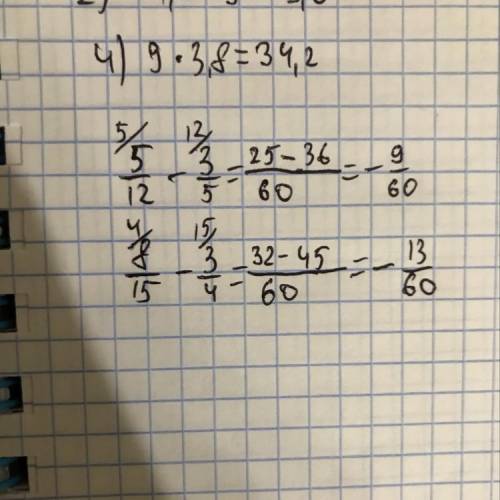 4) 9 · 3,8 = 34,2
5/ 12/
5/12 - 3/5 = 25 - 36/60 = - 9/60
4/ 15/
8/15 - 3/4 = 32 - 45/60 = - 13/60